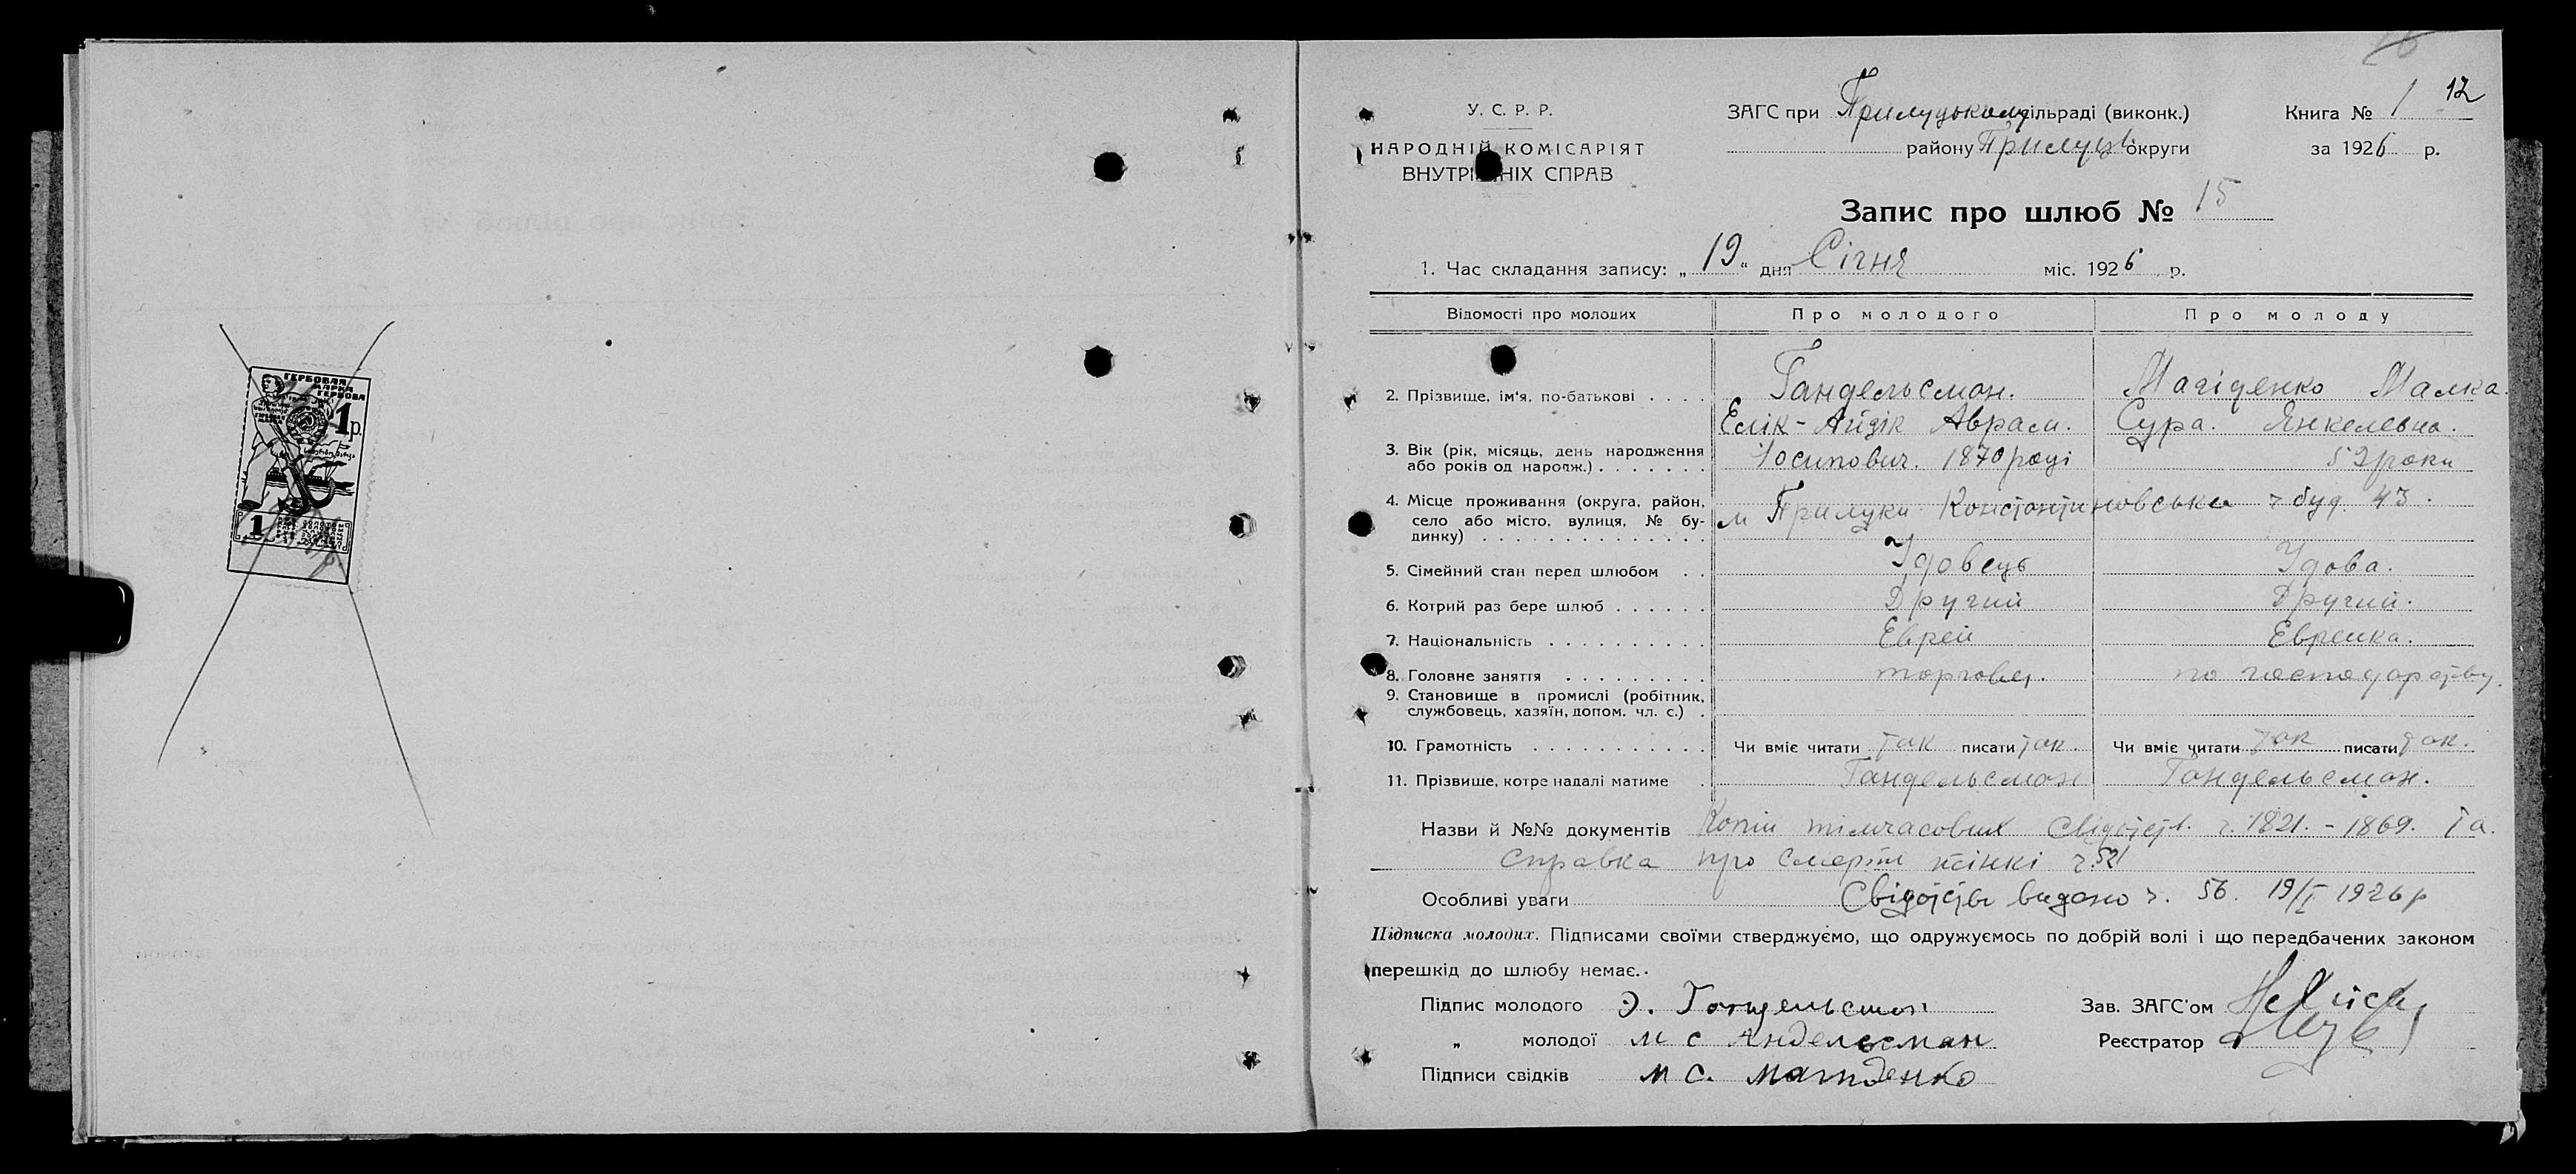 ГЕРБОВАЯ
МАРКА
ГЕРБОВА
1р.
1
12
У. С. Р. Р.
НАРОДНІЙ КОМІСАРІЯТ
ВНУТРІШНІХ СПРАВ
ЗАГС при Прилуцькому сільраді (виконк.)
району Прилуцьк округи
Книга № 1
за 1926 р.
Запис про шлюб № 15
1. Час складання запису: „19“ дня Січня міс. 1926 р.
Відомості про молодих Про молодого Про молоду
2. Прізвище, ім'я, по-батькові . . . . Гандельсман. Магіденко Малка.
Елік-Айзік Аврам. Сура. Янкелевна.
3. Вік (рік, місяць, день народження
або років од народж.) . . . . . . . Йосипович. 1870 році 52 роки
4. Місце проживання (округа, район,
село або місто, вулиця, № бу-
динку) . . . . . . . . . . . . . . м Прилуки Константиновська ч буд. 43.
5. Сімейний стан перед шлюбом . . Удовець Удова.
6. Котрий раз бере шлюб . . . . . . Другий Другий.
7. Національність . . . . . . . . . . Еврей Еврейка.
8. Головне заняття . . . . . . . . . торговец. по господарству.
9. Становище в промислі (робітник,
службовець, хазяїн, допом. чл. с.) .
10. Грамотність . . . . . . . . . . . Чи вміє читати так писати так. Чи вміє читати так писати так.
11. Прізвище, котре надалі матиме . Гандельсман Гандельсман.
Назви й №№ документів Копіи тімчасових Свідоцтв. ч. 1821. - 1869. Та.
справка про смерти жінкі ч. 521
Особливі уваги Свідоцтво видано ч. 56. 19/I 1926 р
Підписка молодих. Підписами своїми стверджуємо, що одружуємось по добрій волі і що передбачених законом
перешкід до шлюбу немає.
Підпис молодого Э. Гандельсман Зав. ЗАГС'ом
„ молодої м с Андельсман Реєстратор
Підписи свідків м с. магиденко